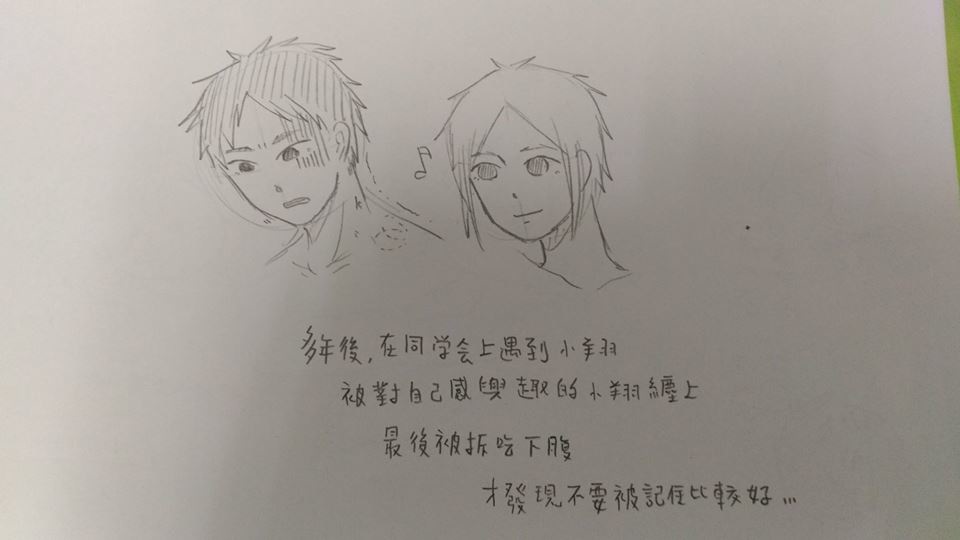 多年後,在同学会上遇到小翔
被對自己感興趣的小翔纏上
最後被拆吃下腹
才發現不要被記住比較好...